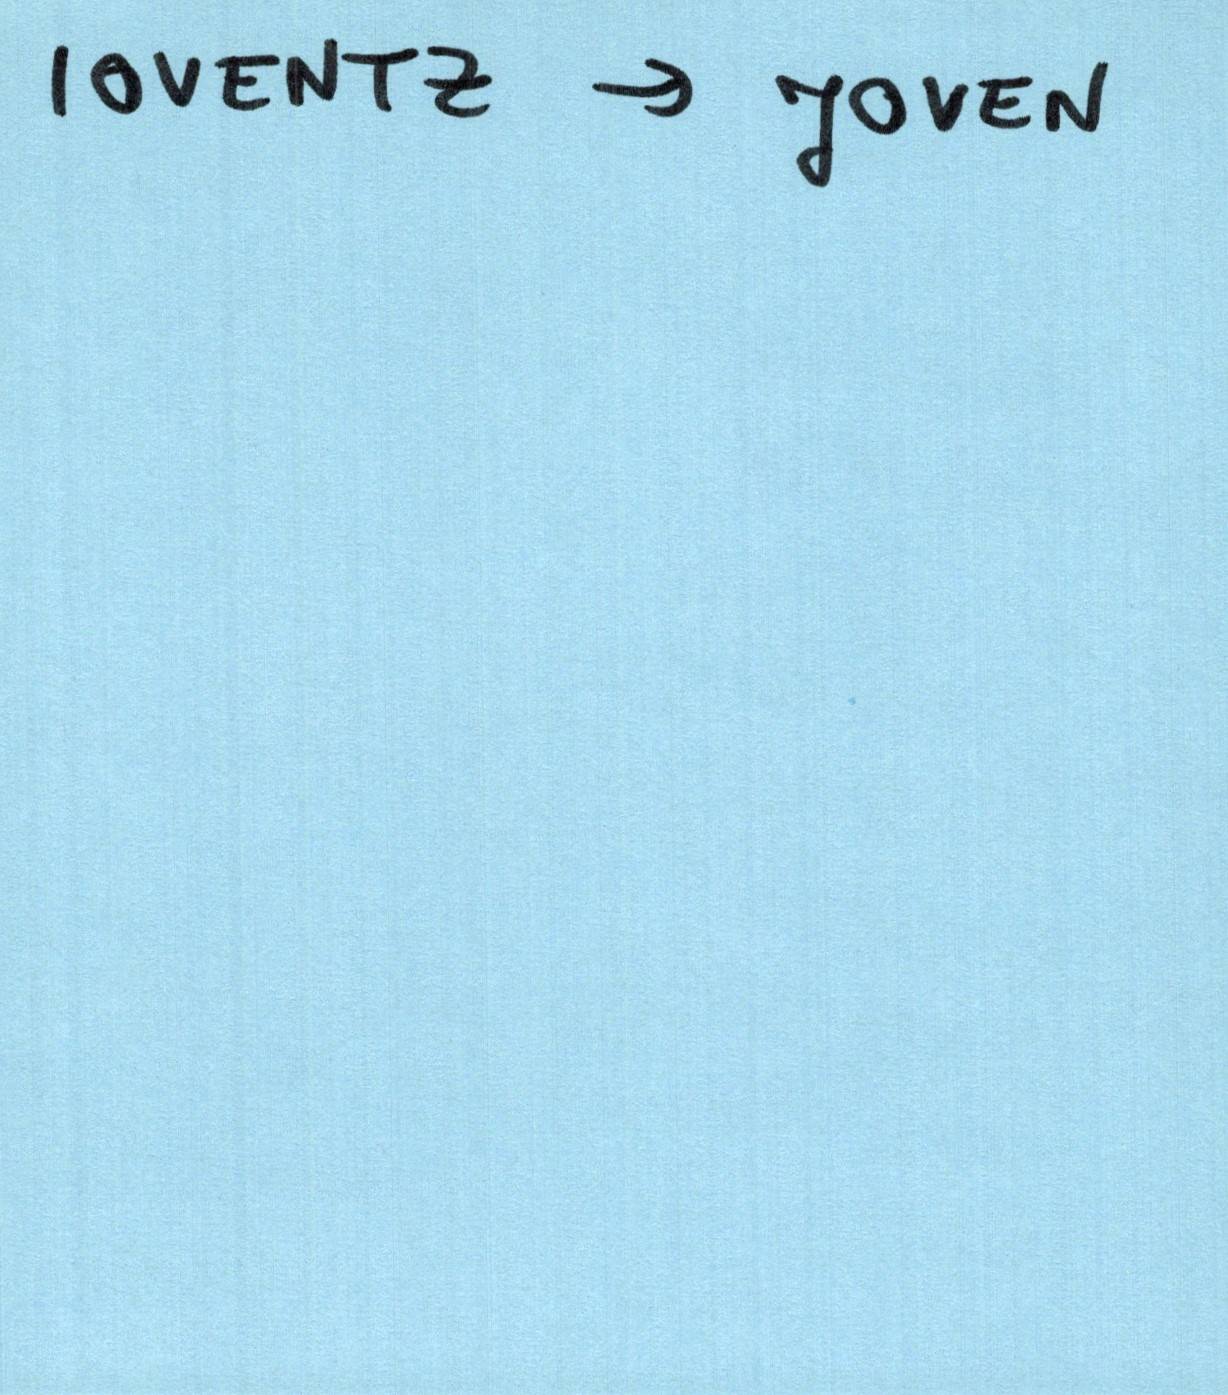 IOVENTZ → JOVEN